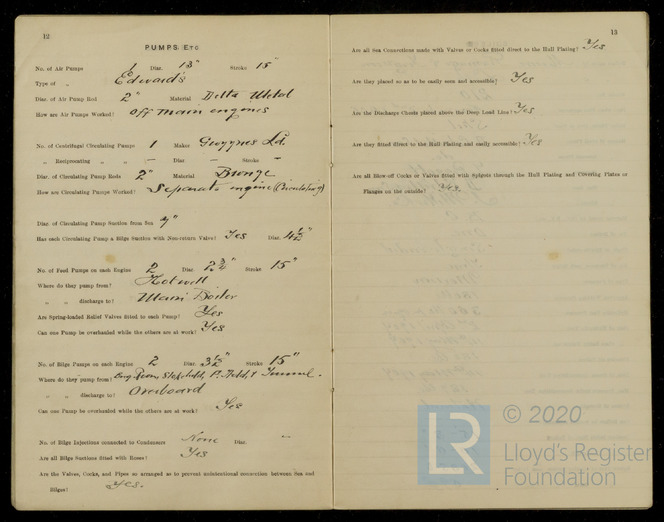 12
PUMPS, ETC
No. of Air Pumps 1 Dia. 13" Stroke 15"
Type of " Edward's
Diar. of Air Pump Rod 2" Material Delta Metal
How are Air Pumps Worked? Off main engines
No. of Centrifugal Circulating Pumps 1 Maker Gwynnes Ld.
" Reciprocating " " - Diar - Stroke -
Diar. of Circulating Pump Rods 2" Material Bronze
How are Circulating Pumps Worked? Separate engine (Circulating)
Diar. of Circulating Pump Suction from Sea 7"
Has each Circulating Pump a Bilge Suction with Non-return Valve? Yes Diar. 4½"
No. of Feed Pumps on each Engine 2 Diar. 2¾" Stroke 15"
Where do they pump from? Hotwell
" " discharge to? Main Boiler
Are Spring-loaded Relief Valves fitted to each Pump? Yes
Can one Pump be overhauled while the others are at work? Yes
No. of Bilge Pumps on each Engine 2 Diar. 3½" Stroke 15"
Where do they pump from? Eng Room, Stokehold, Holds, & Tunnel.
" " discharge to? Overboard
Can one Pump be overhauled while the others are at work? Yes
No. of Bilge Injections connected to Condensers None Diar. --
Are all Bilge Suctions fitted with Roses? Yes
Are the Valves, Cocks, and Pipes so arranged as to prevent unintentional connection between Sea and
Bilges? Yes.
13
Are all Sea Connections made with Valves or Cocks fitted direct to the Hull Plating? Yes
Are they placed so as to be easily seen and accessible? Yes
Are the Discharge Chests placed above the Deep Load Line? Yes
Are they fitted direct to the Hull Plating and easily accessible? Yes
Are all Blow-off Cocks or Valves fitted with Spigots through the Hull Plating and Covering Plates or
Flanges on the outside? Yes.
LR
© 2020
Lloyd's Register
Foundation